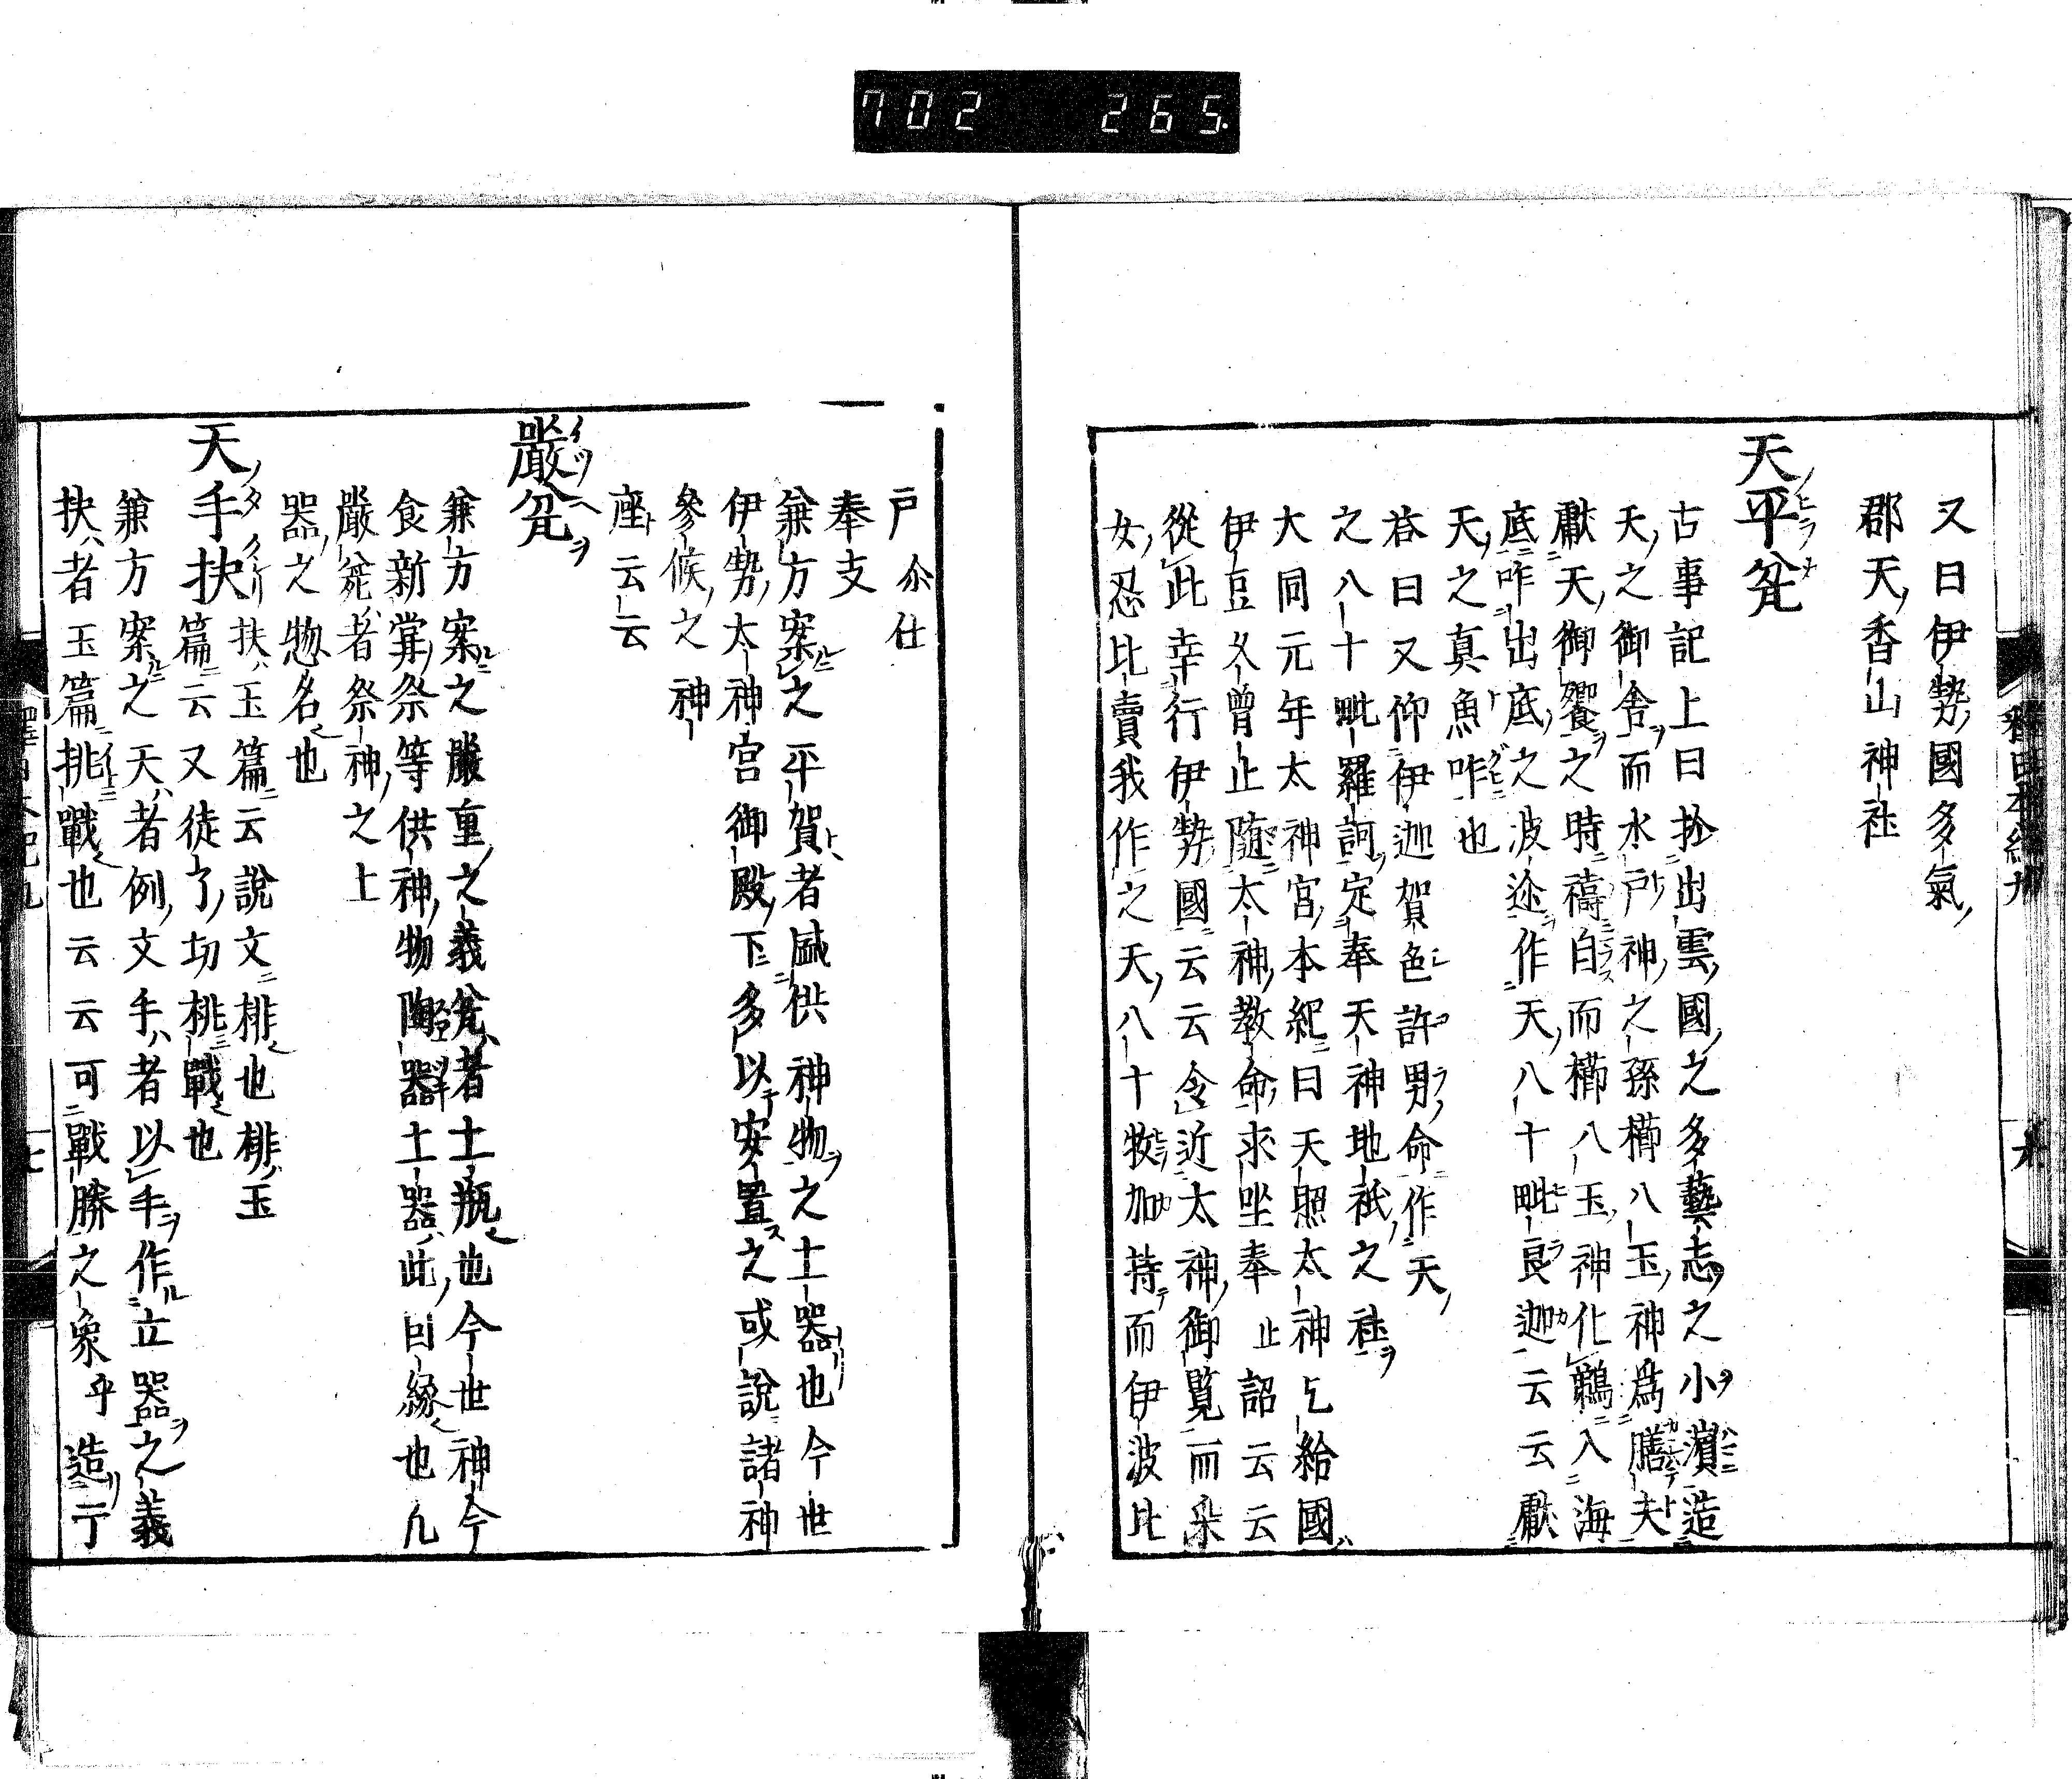 702 265.
又曰伊勢國多氣
郡天香山神社
天平瓫
古事記上曰於出雲國之多藝志之小濵造
天之御舎而水戸神之孫櫛八玉神爲膳夫
獻天御饗之時禱白而櫛八玉神化鵜入海
底咋出底之波迩作天八十毗良迦云云獻
天之真魚咋也
荅曰又仰伊迦賀色許男命作天
之八十毗羅訶定奉天神地祇之社
大同元年太神宮本紀曰天照太神乞給國
伊豆久曾止随太神教命求坐奉止詔云云
從此幸行伊勢國云云令近太神御覧而采
女忍比賣我作之天八十牧加持而伊波比
戸尒仕
奉支
兼方案之平賀者盛供神物之土器也今世
伊勢太神宮御殿下多以安置之或說諸神
參候之神
座云云
嚴瓫
兼方案之嚴重之義瓫者土瓶也今世神今
食新甞祭等供神物陶器土器此曰縁也凡
嚴瓫者祭神之上
器之惣名也
天手抉
扶玉篇云說文桃也桃玉
篇云又徒了切桃戰也
兼方案之天者例文手者以手作立器之義
抉者玉篇挑戰也云云可戰勝之象乎造丁